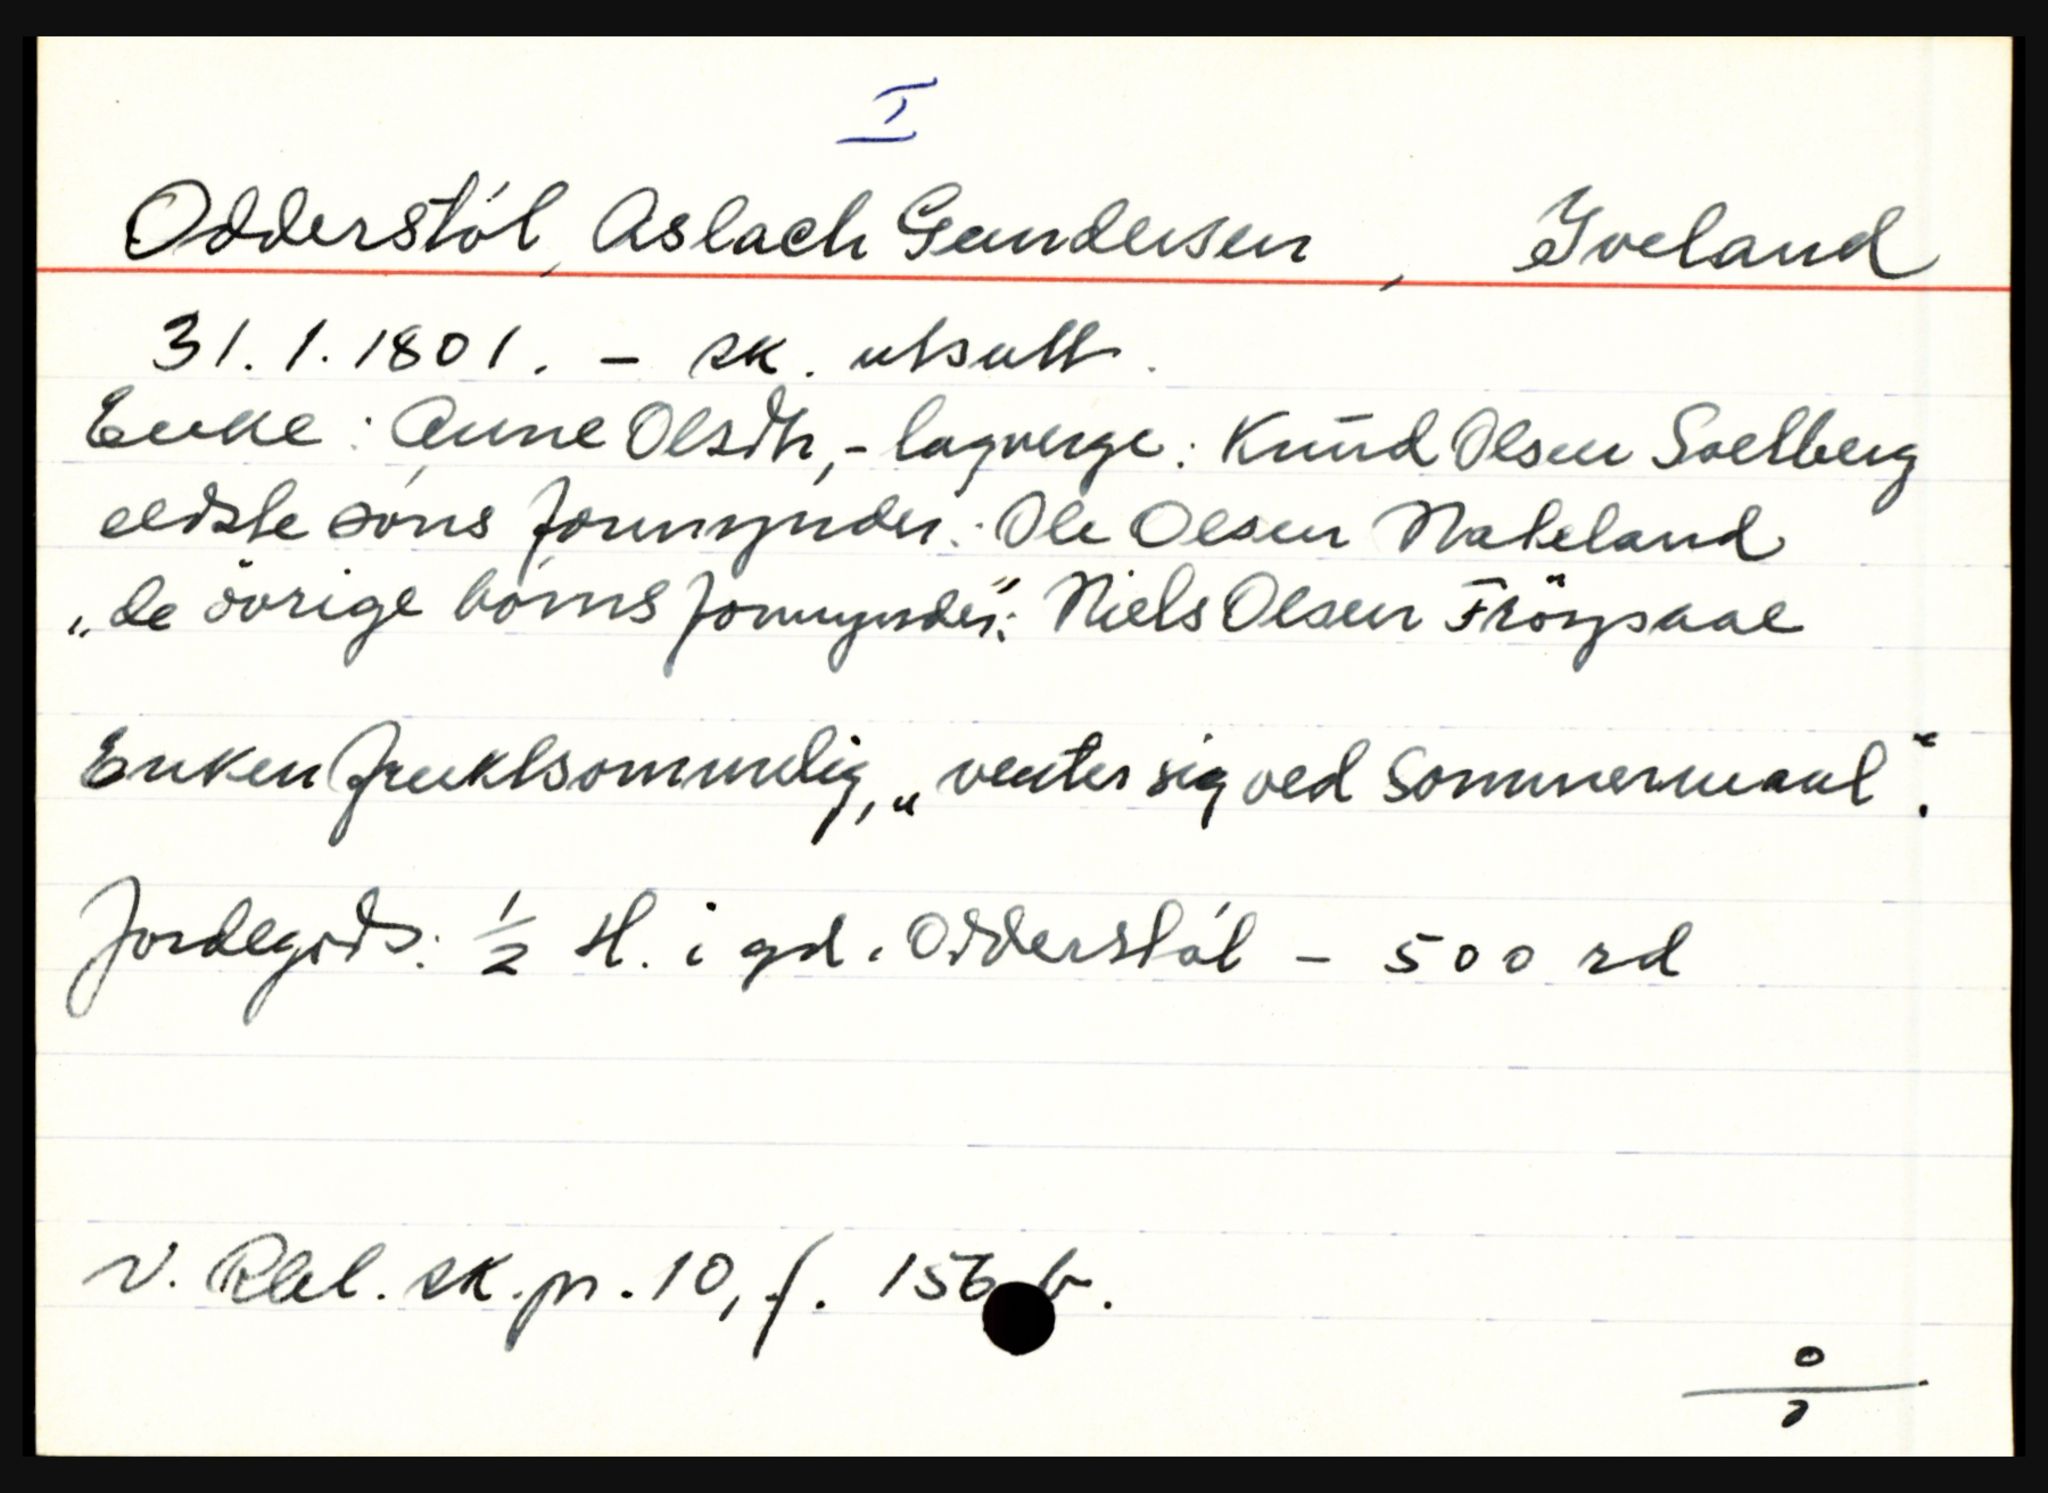 I
Odderstöl, Aslach Gundersen, Iveland
31. 1. 1801. - sk. utsatt.
Enke: Anne Olsdtr, - lagverge: Knud Olsen Solberg
eldste söns formynder: Ole Olsen Nateland
„de övrige börns formynder": Niels Olsen Fröysaae
Enken fruktsommelig, „venter sig ved Sommermaal".
Jordegods: 1/2 H. i gd. Odderstöl - 500 rd
V. Rbl. sk. pr. 10, f. 156 b.
0